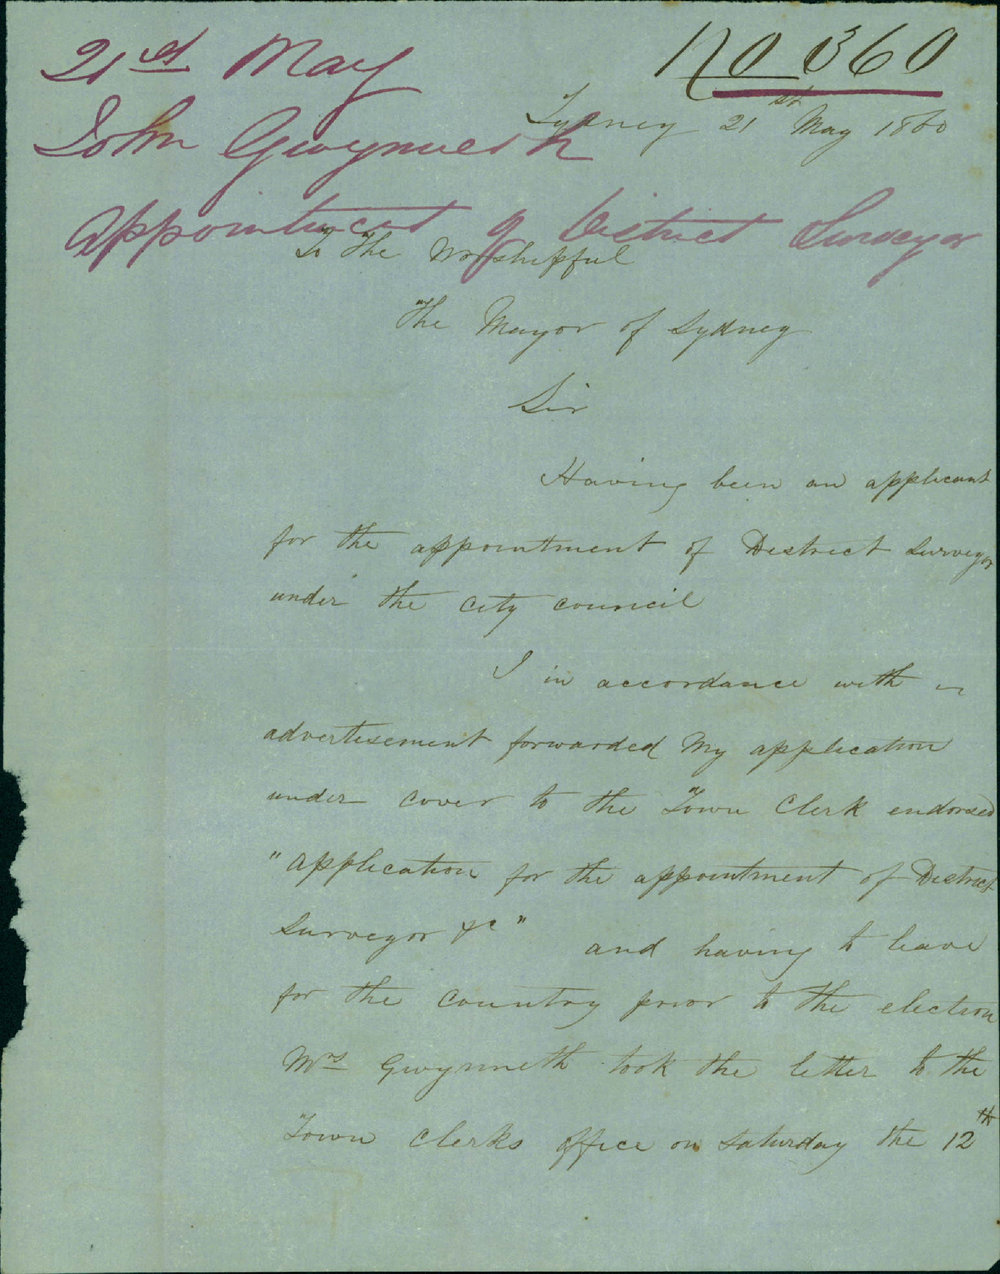 21st May
No 360
John Gwynneth
Sydney 21st May 1860
appointment of District Surveyor
To The Worshipful
The Mayor of Sydney
Sir
Having been an applicant
for the appointment of District Surveyor
under the City Council
I in accordance with
advertisement forwarded My application
under cover to the Town Clerk endorsed
"Application for the appointment of District
Surveyor &c" and having to leave
for the Country prior to the election
Mrs Gwynneth took the letter to the
Town Clerks office on Saturday the 12th